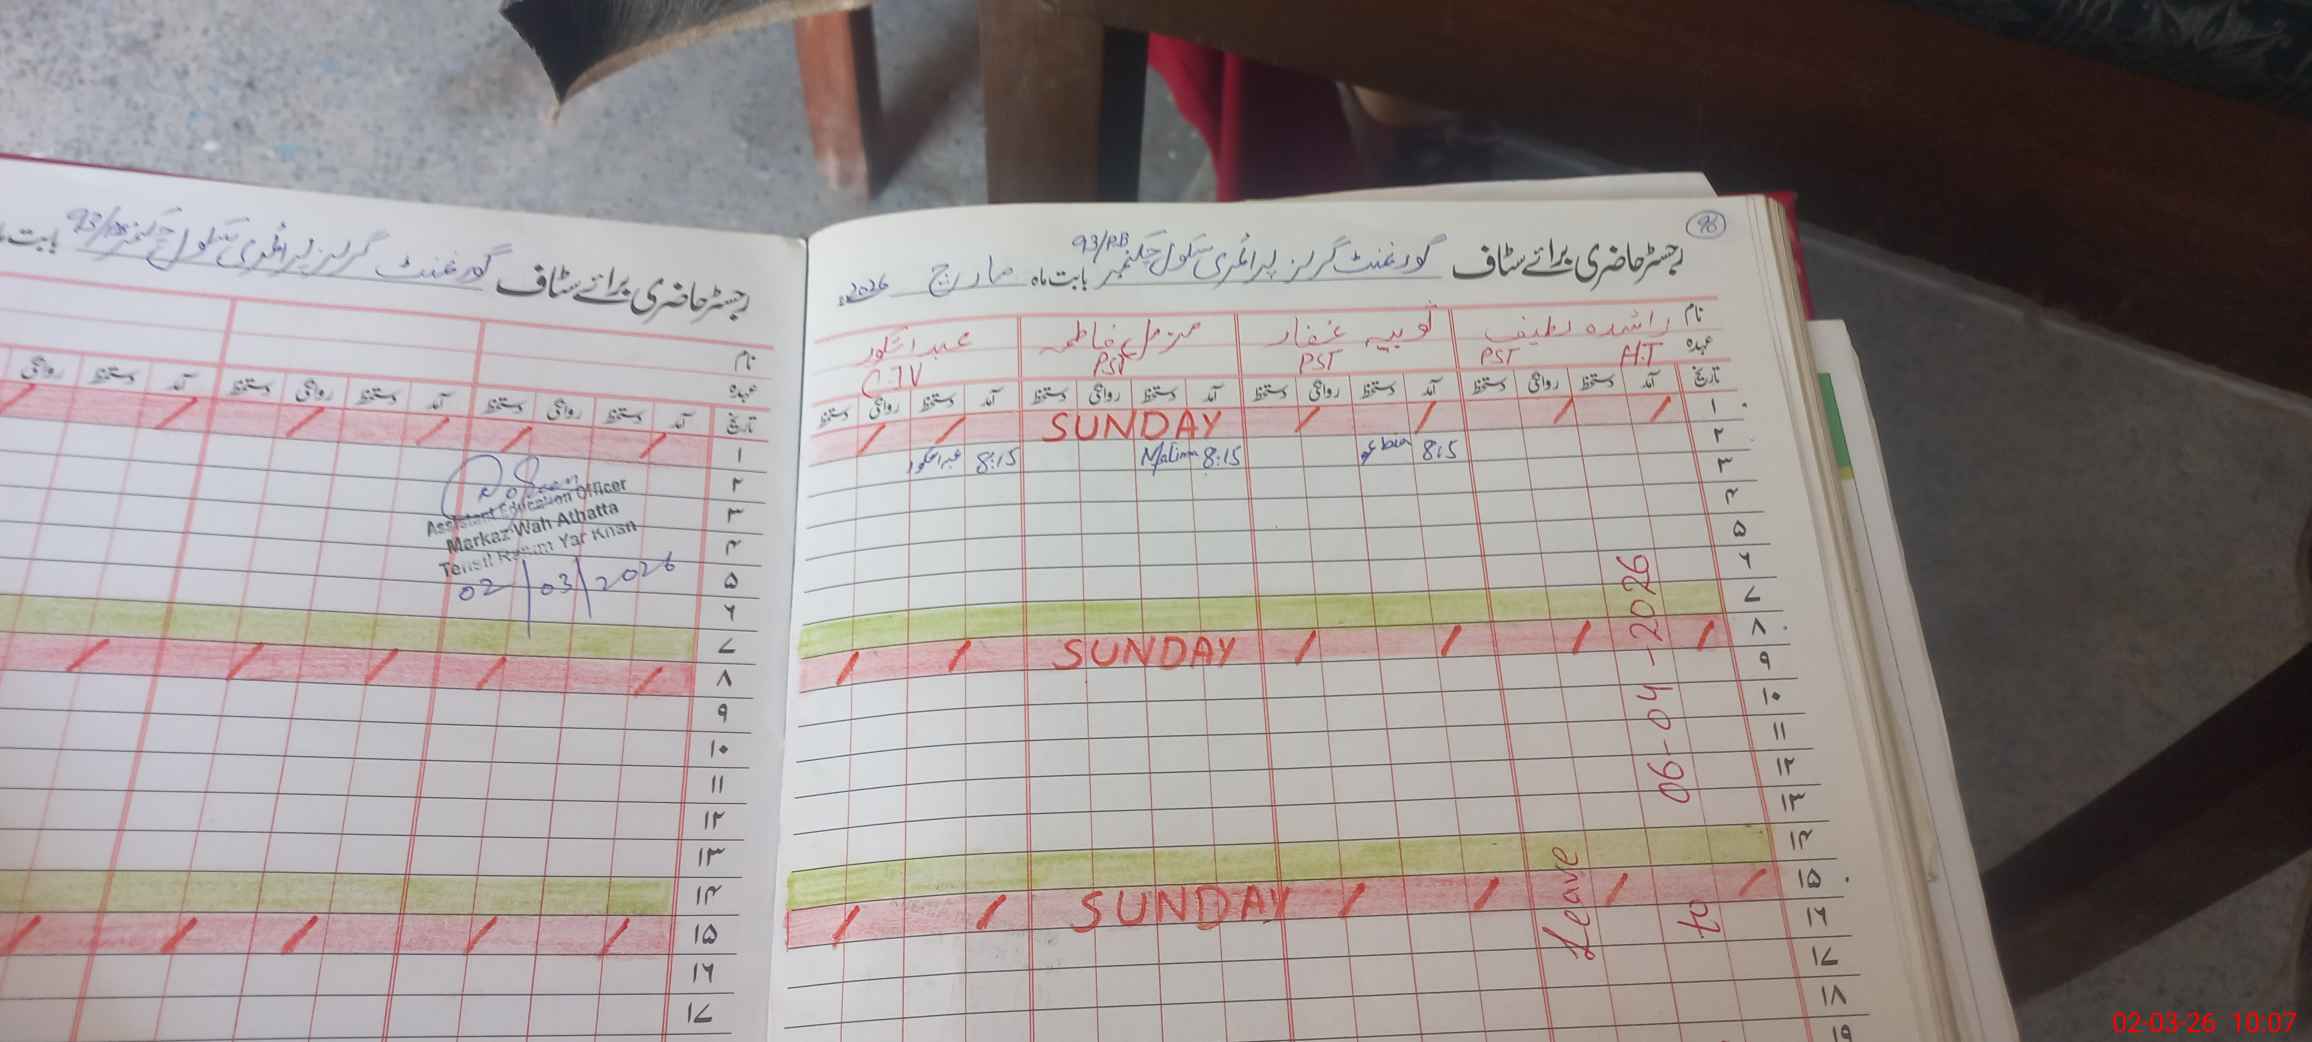 96
رجسٹر حاضری برائے سٹاف گورنمنٹ گرلز پرائمری سکول چک نمبر 93/P.B بابت ماہ مارچ 2026ء
نام راشدہ لطیف ثوبیہ غفار مزمل فاطمہ عبدالشکور
عہدہ H.T PST PST PST C-IV
تاریخ آمد دستخط روانگی دستخط آمد دستخط روانگی دستخط آمد دستخط روانگی دستخط آمد دستخط روانگی دستخط
۱ SUNDAY
۲ 8:15 8:15 Malim 8:15 عبدالشکور
۳
۴
۵
۶
۷
۸ SUNDAY
۹
۱۰
۱۱
۱۲
۱۳
۱۴
۱۵ SUNDAY
۱۶
۱۷
۱۸
۱۹
Leave
to 06-04-2026
رجسٹر حاضری برائے سٹاف گورنمنٹ گرلز پرائمری سکول چک نمبر 93/PB بابت
نام
عہدہ
تاریخ آمد دستخط روانگی دستخط آمد دستخط روانگی دستخط آمد دستخط روانگی
۱
۲
۳
۴
۵
۶
۷
۸
۹
۱۰
۱۱
۱۲
۱۳
۱۴
۱۵
۱۶
۱۷
Assistant Education Officer
Markaz Wah Athatta
Tehsil Rahim Yar Khan
02/03/2026
02-03-26 10:07